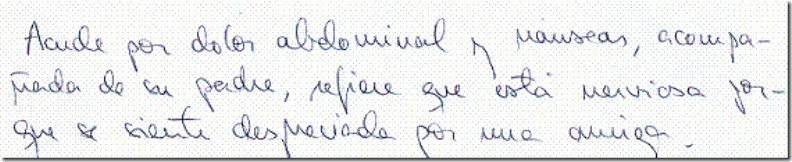 Acude por dolor abdominal y náuseas, acompa-
ñada de su padre, refiere que está nerviosa por-
que se siente despreciada por una amiga.